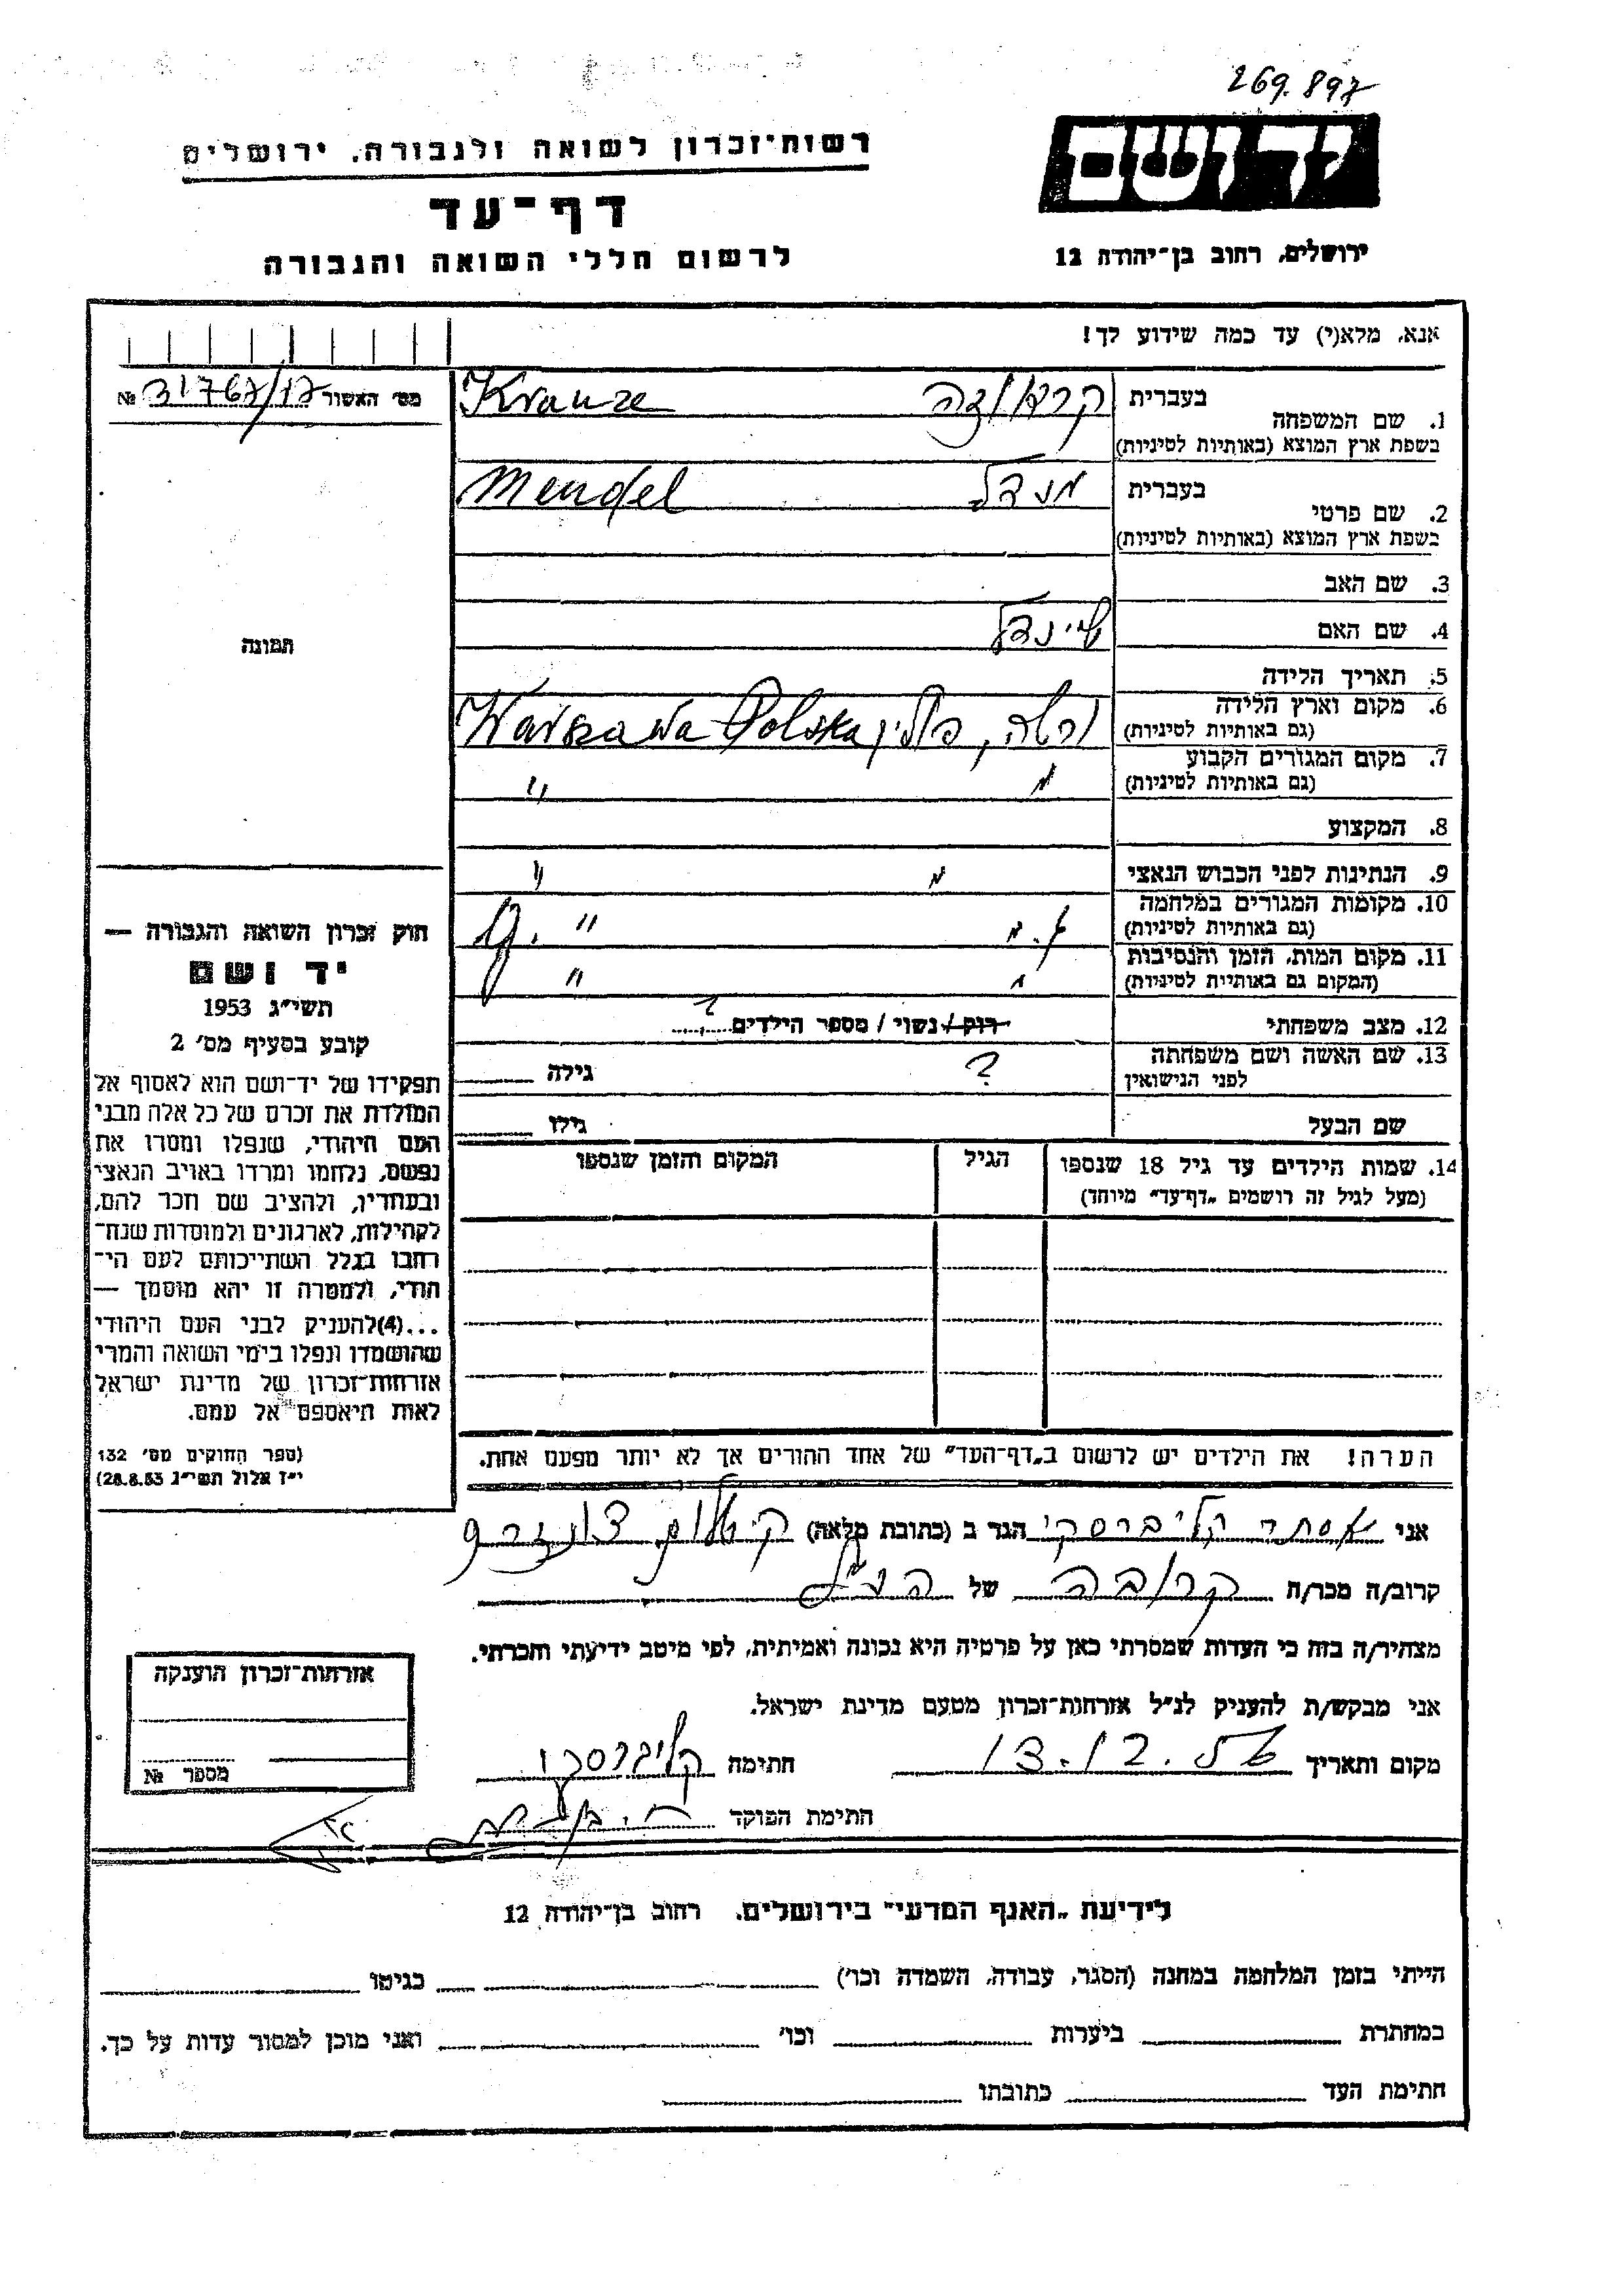 269.897
יד ושם
רשות־זכרון לשואה ולגבורה, ירושלים
דף־עד
לרשום חללי השואה והגבורה
ירושלים, רחוב בן־יהודה 12
אנא, מלא(י) עד כמה שידוע לך!
מס׳ האשור 31767/17 №
1. שם המשפחה
בעברית קראוזה
בשפת ארץ המוצא (באותיות לטיניות) Krauze
2. שם פרטי
בעברית מנדל
בשפת ארץ המוצא (באותיות לטיניות) Mendel
3. שם האב
4. שם האם שיינדל
5. תאריך הלידה
6. מקום וארץ הלידה
(גם באותיות לטיניות) ורשה, פולין Warszawa Polska
7. מקום המגורים הקבוע
(גם באותיות לטיניות) " "
8. המקצוע
9. הנתינות לפני הכבוש הנאצי " "
10. מקומות המגורים במלחמה
(גם באותיות לטיניות) "
11. מקום המות, הזמן והנסיבות
(המקום גם באותיות לטיניות) " "
12. מצב משפחתי רוק / נשוי / מספר הילדים ?
13. שם האשה ושם משפחתה
לפני הנישואין ? גילה
שם הבעל גילו
14. שמות הילדים עד גיל 18 שנספו
(מעל לגיל זה רושמים „דף־עד" מיוחד)
הגיל
המקום והזמן שנספו
תמונה
חוק זכרון השואה והגבורה —
יד ושם
תשי״ג 1953
קובע בסעיף מס׳ 2
תפקידו של יד־ושם הוא לאסוף אל
המולדת את זכרם של כל אלה מבני
העם היהודי, שנפלו ומסרו את
נפשם, נלחמו ומרדו באויב הנאצי
ובעוזריו, ולהציב שם וזכר להם,
לקהילות, לארגונים ולמוסדות שנח־
רבו בגלל השתייכותם לעם הי־
הודי, ולמטרה זו יהא מוסמך —
...(4)להעניק לבני העם היהודי
שהושמדו ונפלו בימי השואה והמרי
אזרחות־זכרון של מדינת ישראל
לאות היאספם אל עמם.
(ספר החוקים מס׳ 132
י״ז אלול תשי״ג 28.8.53)
הערה! את הילדים יש לרשום ב„דף־העד" של אחד ההורים אך לא יותר מפעם אחת.
אני אסתר קליברסקי הגר ב (כתובת מלאה)
קרוב/ה מכר/ה קרובה של הנ״ל
מצהיר/ה בזה כי העדות שמסרתי כאן על פרטיה היא נכונה ואמיתית, לפי מיטב ידיעתי והכרתי.
אני מבקש/ת להעניק לנ״ל אזרחות־זכרון מטעם מדינת ישראל.
מקום ותאריך 13.12.56 חתימה קליברסקי
חתימת הפוקד
אזרחות־זכרון הוענקה
מספר №
לידיעת „האגף המדעי" בירושלים, רחוב בן־יהודה 12
הייתי בזמן המלחמה במחנה (הסגר, עבודה, השמדה וכו׳) בגיטו
במחתרת ביערות וכו׳ ואני מוכן למסור עדות על כך.
חתימת העד כתובתו